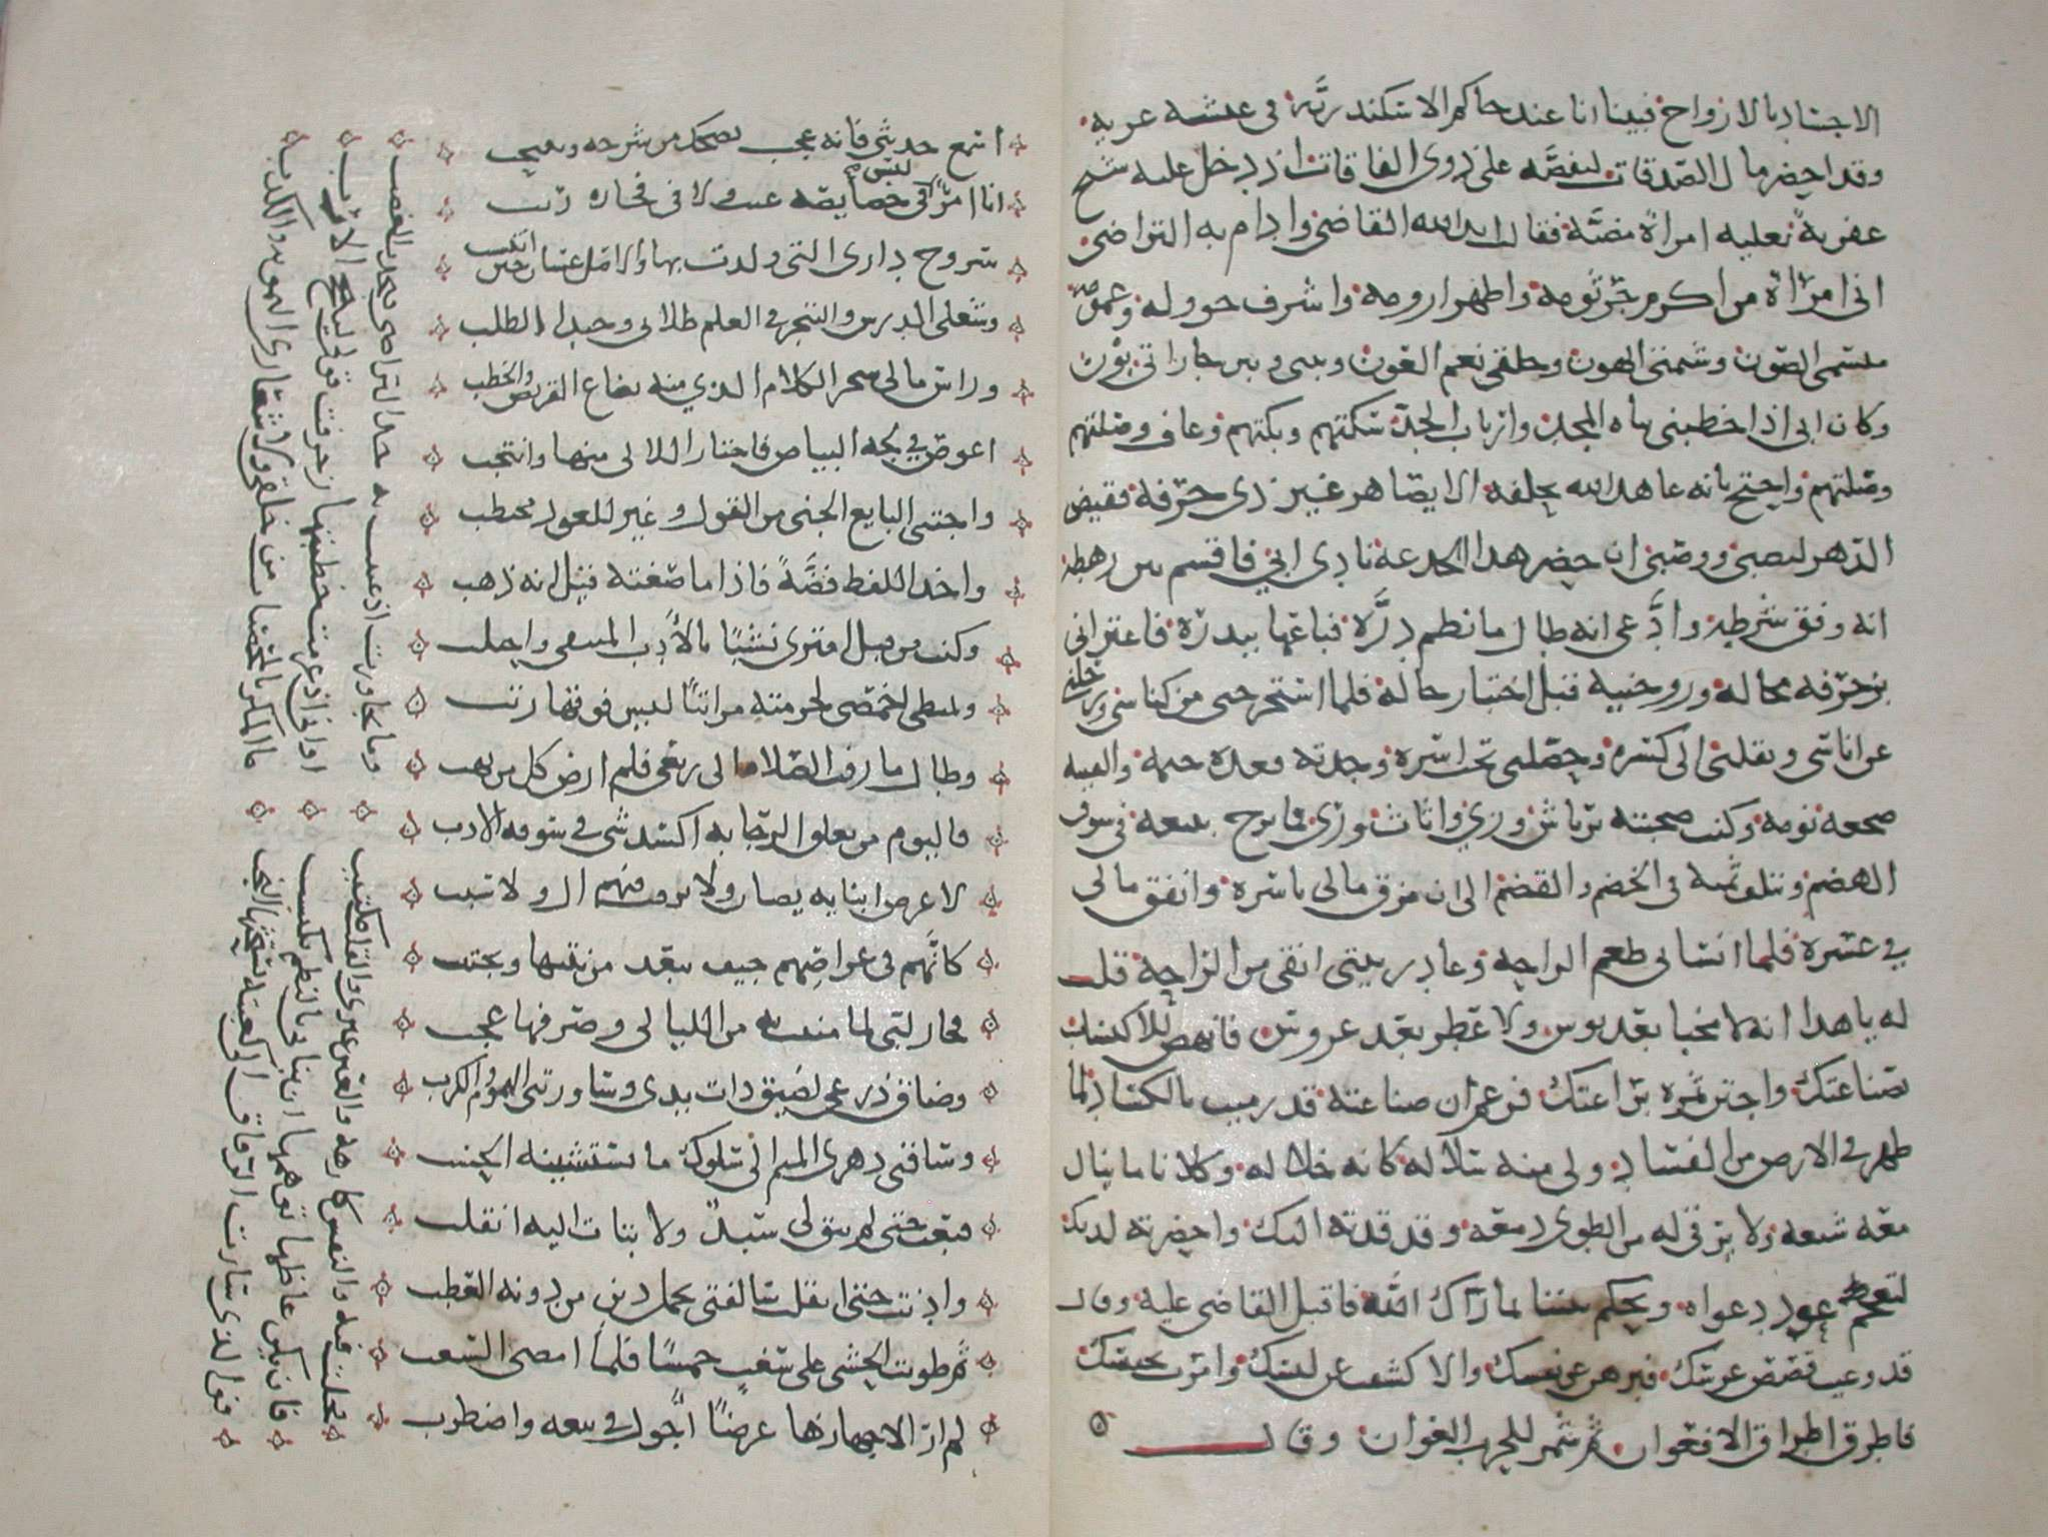 الاجساد بالارواح فبينا انا عند حاكم الاسكندريّة في عشية عرية
وقد احضر مال الصدقات ليفضّه على ذوي الفاقات اذ دخل عليه شيخ
عفرية تعتله امراة مصبية فقالت ايد الله القاضي وادام به التراضي
اني امراة من اكرم جرثومة واطهر ارومة واشرف خوولة وعمومة
ميسمي الصون وشيمتي الهون وخلقي نعم العون وبيني وبين جاراتي بون
وكان ابي اذا خطبني بناة المجد وارباب الجد سكتهم وبكتهم وعاف وصلتهم
وصلتهم واحتج بانه عاهد الله بحلفة الا يصاهر غير ذي حرفة فقيض
الدهر لنصبي ووصبي ان حضر هذا الخدعة نادي ابي فاقسم بين رهطه
انه وفق شرطه وادّعى انه طال ما نظم درّة فباعها ببدرة فاغتر ابي
بزخرفة محاله وزوجنيه قبل اختبار حاله فلما استخرجني من كناسي ورحلني
عن اناسي ونقلني الى كسره وحصلني تحت اسره وجدته قعدة جثمة والفيته
ضجعة نومة وكنت صحبته برياش وزي واثاث وري فما برح يبيعه في سوق
الهضم ويتلف ثمنه في الخضم والقضم الى ان مزق مالي باسره وانفق مالي
في عسره فلما انساني طعم الراحة وغادر بيتي انقى من الراحة قلت
له يا هذا انه لا مخبا بعد بوس ولا عطر بعد عروس فانهض للاكتساب
بصناعتك واجتن ثمرة براعتك فزعم ان صناعته قد رميت بالكساد لما
ظهر في الارض من الفساد ولي منه سلالة كانه خلالة وكلانا ما ينال
معه شبعة ولا ترقى له من الطوى دمعة وقد قدته اليك واحضرته لديك
لتعجم عود دعواه وتحكم بيننا بما اراك الله فاقبل القاضي عليه وقال
قد وعيت قصص عرسك فبرهن عن نفسك والا كشفت عن لبسك وامرت بحبسك
فاطرق اطراق الافعوان ثم شمر للحرب العوان وقال
اسمع حديثي فانه عجب يضحك من شرحه وينتحب
انا امرؤ ليس في خصايصه عيب ولا في فخاره ريب
سروج داري التي ولدت بها والاصل غسان حين انتسب
وشغلي الدرس والتبحر في العلم طلابي وحبذا الطلب
وراس مالي سحر الكلام الذي منه يصاغ القريض والخطب
اغوص في لجة البيان فاختار اللالي منها وانتخب
واجتني اليانع الجني من القول وغيري للعود محتطب
واخذ اللفظ فضّةً فاذا ما صغته قيل انه ذهب
وكنت من قبل امتري نشبًا بالادب المقتنى واحتلب
ويمتطي اخمصي لحرمته مراتبًا ليس فوقها رتب
وطال ما زفت الصلات الى ربعي فلم ارض كل من يهب
فاليوم من يعلق الرجا به اكسد شي في سوقه الادب
لا عرض ابنايه يصان ولا يرقب فيهم ال ولا سبب
كانّهم في عراصهم جيف يبعد من نتنها ويجتنب
فحار لبي لما منيت به من الليالي وصرفها عجب
وضاق ذرعي لضيق ذات يدي وساورتني الهموم والكرب
وساقني دهري المليم الى سلوك ما يستشينه الحسب
فبعت حتى لم يبق لي سبد ولا بتات اليه انقلب
وادنت حتى اثقلت سالفتي بحمل دين من دونه العطب
ثم طويت الحشى على سغب خمسًا فلما امضني السغب
لم ار الا جهازها عرضًا اجول في بيعه واضطرب
فجلت فيه والنفس كارهة والعين عبرى والقلب مكتيب
وما تجاوزت اذ عبثت به حد التراضي فيحدث الغضب
فان يكن غاظها توهمها ان بناني بالنظم تكتسب
او انني اذ عزمت خطبتها زخرفت قولي لينجح الارب
فوالذي سارت الرفاق الى كعبته تستحثها النجب
ما المكر بالمحصنات من خلقي ولا شعاري التمويه والكذب